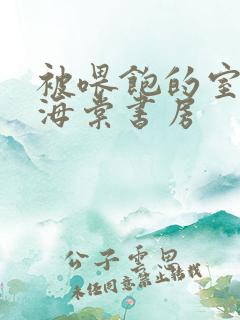 被喂饱的室
海棠书房
公子云思
未经同意禁止转载